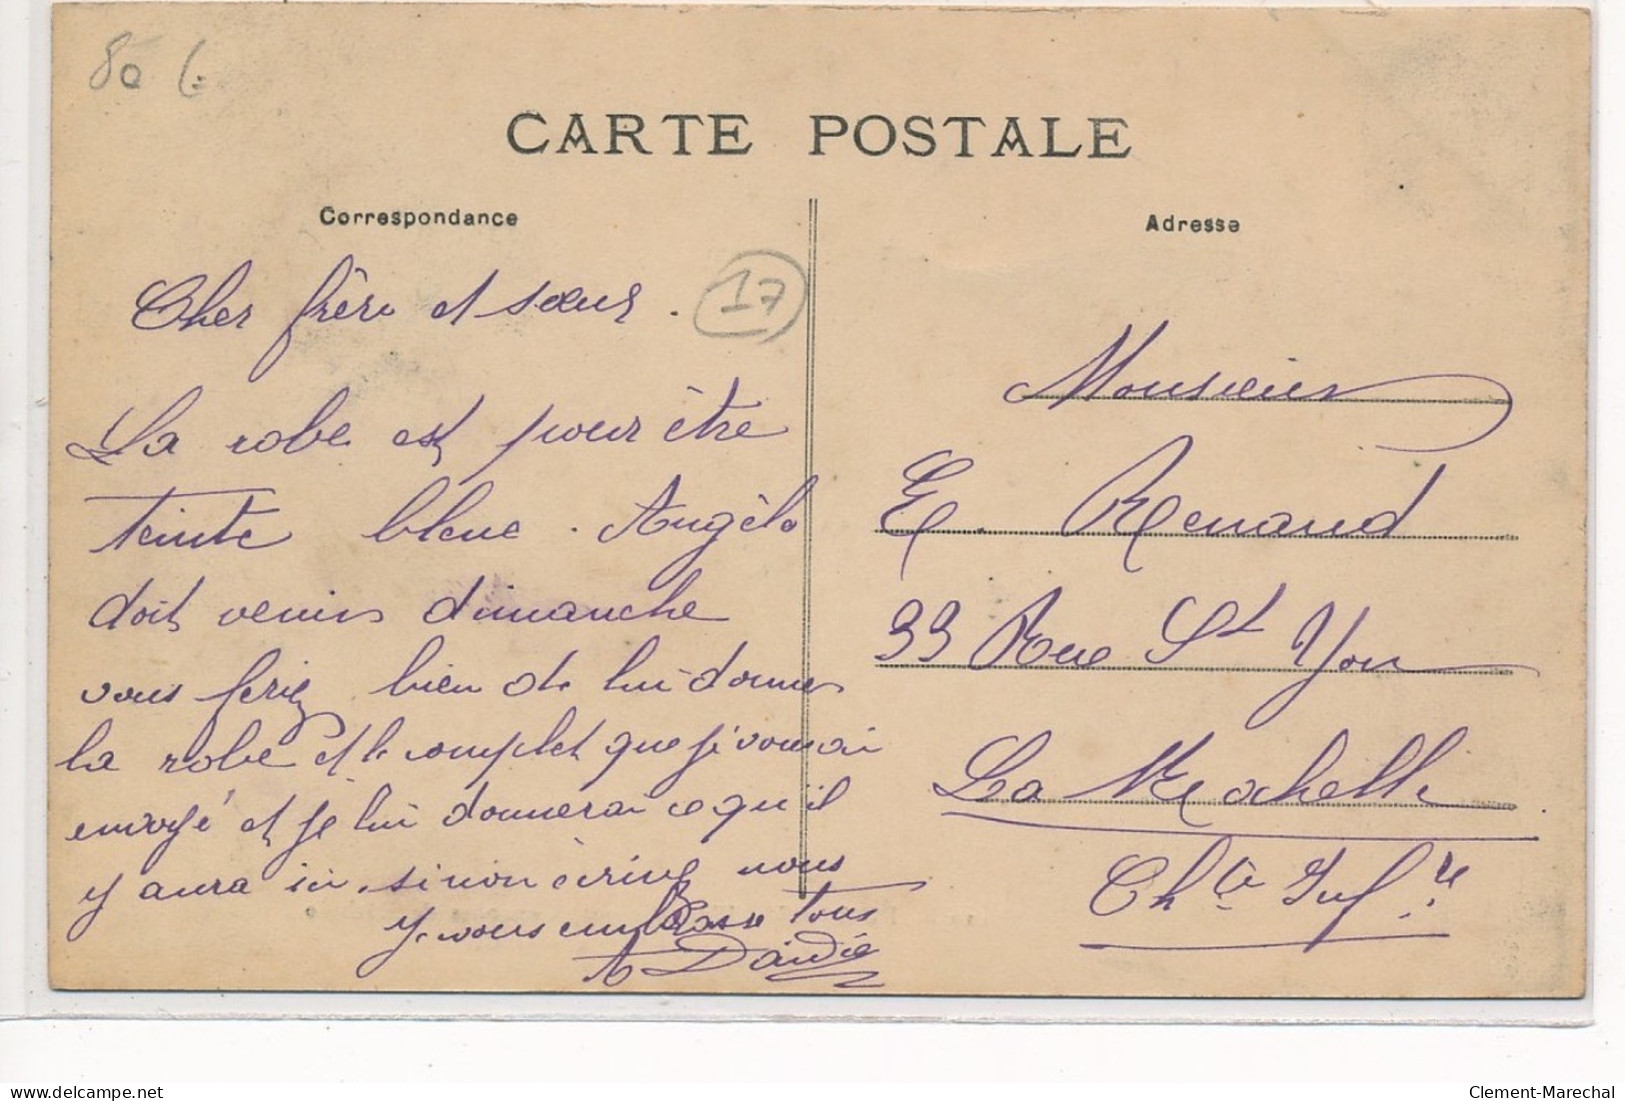 80 €
CARTE POSTALE
Correspondance
Cher frère et sœur.
17
La robe est pour être
teinte bleue. Angèle
doit venir dimanche
vous feriez bien de lui donner
la robe et le complet que je vous ai
envoyé et je lui donnerai ce qu'il
y aura ici. sinon écrivez nous
Je vous embrasse tous
A Daidié
Adresse
Monsieur
E. Renaud
33 Rue St Yon
La Rochelle
Chte Infre
delcampe.net
Clement-Marechal